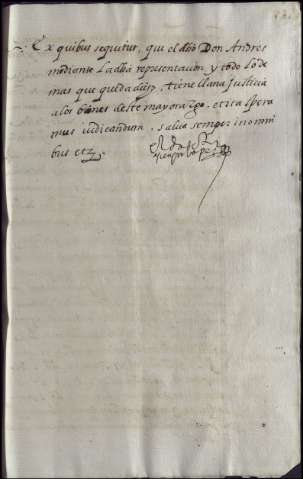 Ex quibus sequitur, que el dho Don Andres
mediante La dha representacion y todo lo de
mas que queda dho, tiene llana Justicia
a los bienes deste mayorazgo. et ita spera
mus iudicandum, salua semper in omni
bus etz.